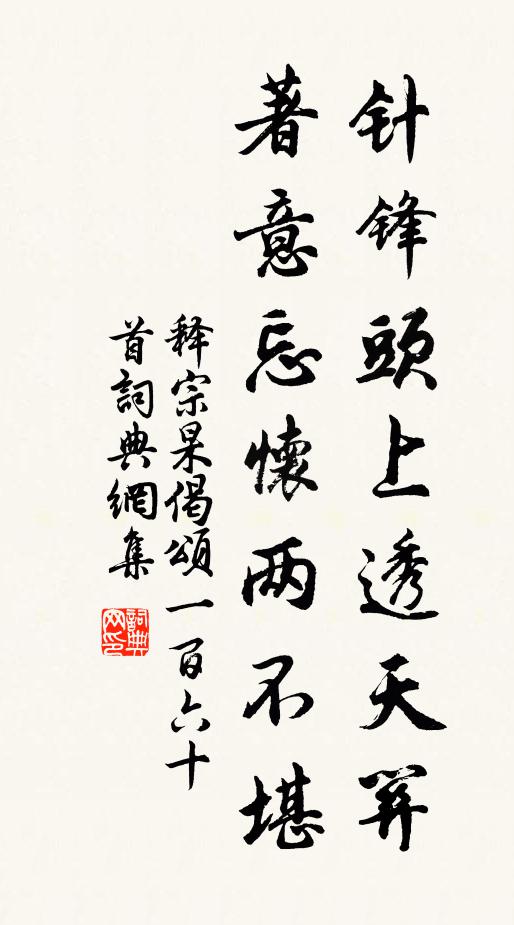 针锋頭上透天関
著意忘懷两不堪
释宗杲偈頌一百六十
首詞典網集
詞典网印